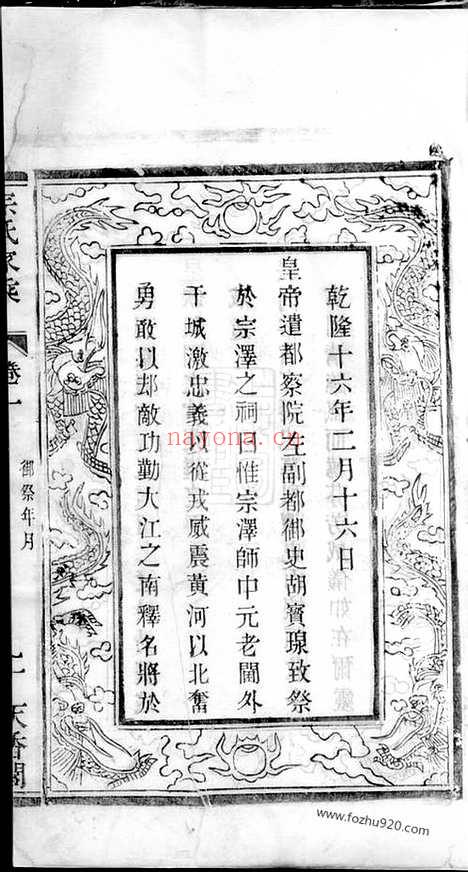 乾隆十六年二月十六日
皇帝遣都察院左副都御史胡寶瑔致祭
於宗澤之祠曰惟宗澤師中元老閫外
干城激忠義以從戎威震黃河以北奮
勇敢以却敵功勤大江之南釋名將於
卷一
御祭年月
nayona.cn
www.fozhu920.com